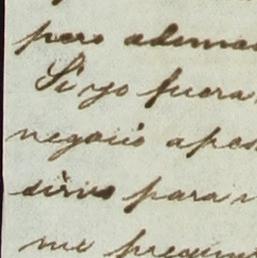 pero ademas
Si yo fuera
negocio apes
sirve para
me pregun